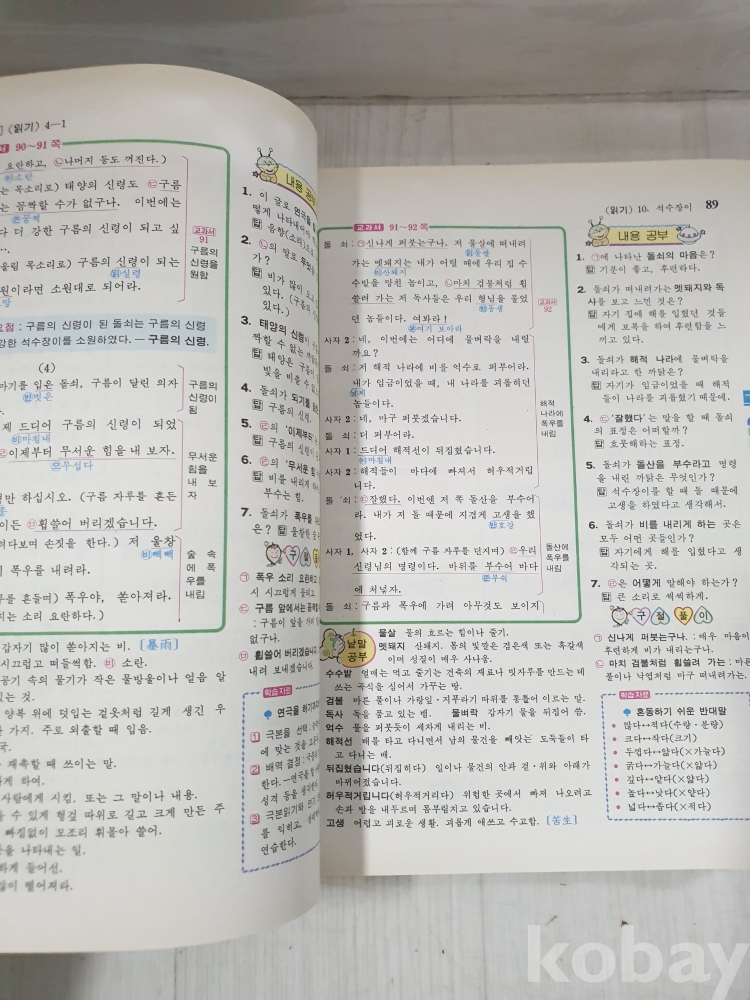 (읽기) 4-1
90~91 쪽
요란하고, ㉡나머지 등도 꺼진다.)
소란
는 목소리로) 태양의 신령도 ㉢구름
는 꼼짝할 수가 없구나. 이번에는
꿈쩍
다 더 강한 구름의 신령이 되고 싶
교과서
91
구름의
신령을
원함
울림 목소리로) 구름의 신령이 되는
실령
원이라면 소원대로 되어라.
요점 : 구름의 신령이 된 돌쇠는 구름의 신령
강한 석수장이를 소원하였다. — 구름의 신령.
(4)
마기를 입은 돌쇠, 구름이 달린 의자
벗은
구름의
신령이
됨
제 드디어 구름의 신령이 되었
마침내
이제부터 무서운 힘을 내 보자.
무섭다
무서운
힘을
내 보
자
령만 하십시오. (구름 자루를 흔든
이든 ㉤휩쓸어 버리겠습니다.
려다보며 손짓을 한다.) 저 울창
빽빽
폭우를 내려라.
숲 속
에 폭
우를
내림
루를 흔들며) 폭우야, 쏟아져라.
지는 소리 요란하다.)
갑자기 많이 쏟아지는 비. [暴雨]
시끄럽고 떠들썩함. 소란.
공기 속의 물기가 작은 물방울이나 얼음 알
있는 것.
양복 위에 덧입는 겉옷처럼 길게 생긴 우
한 가지. 주로 외출할 때 입음.
재촉할 때 쓰이는 말.
하게 하여.
사람에게 시킴. 또는 그 말이나 내용.
을 수 있게 헝겊 따위로 길고 크게 만든 주
빠짐없이 모조리 휘몰아 쓸어.
을 나타내는 일.
하게 들어선.
많이 떨어져라.
내용 공
1. 이 글로 연극을
떻게 나타내어야
답 음향(소리)으로
2. ㉡의 말로
가?
답 비가 많이 오고
있다. (구름의
있다.)
3. 태양의 신령이
짝할 수 없는 까닭
답 태양은 구름이
빛을 비출 수 없
4. 돌쇠가 되기를 원한
답 구름의 신령.
5. ㉣의 '이제부터'는
답 구름의 신령이
6. ㉣의 '무서운 힘'
답 비를 내리게 하
부수는 힘.
7. 돌쇠가 폭우를
은? 답 울창한 숲
구 절
㉠ 폭우 소리 요란하고
시 시끄럽게 들리고
㉢ 구름 앞에서는 꼼짝할
: 구름이 앞을 가리
없구나.
㉤ 휩쓸어 버리겠습니다
내려 보내겠습니다.
학습 자료
연극을 하기까지
1 극본을 선택 :
에 맞는 것을 고른
2 배역 결정 :
한다. — 연극을 할
성격 등을 생각한
3 극본읽기와
를 익히고,
연습한다.
(읽기) 10. 석수장이 89
교과서 91~92 쪽
돌 쇠 : ㉠신나게 퍼붓는구나. 저 물살에 떠내려
가는 멧돼지는 내가 어릴 때에 우리 집 수
산돼지
수밭을 망친 놈이고, ㉡마치 검불처럼 휩
쓸려 가는 저 독사들은 우리 형님을 물었
동생
교과서
92
던 놈들이다. 여봐라!
여기 보아라
사자 2 : 네, 이번에는 어디에 물벼락을 내릴
까요?
돌 쇠 : 저 해적 나라에 비를 억수로 퍼부어라.
내가 임금이었을 때, 내 나라를 괴롭히던
놈들이다.
해적
나라에
폭우를
내림
사자 2 : 네, 마구 퍼붓겠습니다.
돌 쇠 : 더 퍼부어라.
사자 1 : 드디어 해적선이 뒤집혔습니다.
마침내
사자 2 : 해적들이 바다에 빠져서 허우적거립
니다.
돌 쇠 : ㉢잘했다. 이번엔 저 쪽 돌산을 부수어
라. 내가 저 돌 때문에 지겹게 고생을 했
호강
었다.
사자 1, 사자 2 : (함께 구름 자루를 던지며) ㉣우리
신령님의 명령이다. 바위를 부수어 바다
무쉬
에 처넣자.
돌산에
폭우를
내림
돌 쇠 : 구름과 폭우에 가려 아무것도 보이지
낱말 공부
물살 물의 흐르는 힘이나 줄기.
멧돼지 산돼지. 몸의 빛깔은 검은색 또는 흑갈색
이며 성질이 매우 사나움.
수수밭 열매는 먹고 줄기는 건축의 재료나 빗자루를 만드는 데
쓰는 곡식을 심어서 가꾸는 땅.
검불 마른 풀이나 가랑잎·지푸라기 따위를 통틀어 이르는 말.
독사 독을 품고 있는 뱀. 물벼락 갑자기 물을 뒤집어 씀.
억수 물을 퍼붓듯이 세차게 내리는 비.
해적선 배를 타고 다니면서 남의 물건을 빼앗는 도둑들이 타
고 다니는 배.
뒤집혔습니다(뒤집히다) 일이나 물건의 안과 겉·위와 아래가
바뀌어졌습니다.
허우적거립니다(허우적거리다) 위험한 곳에서 빠져 나오려고
손과 발을 내두르며 몸부림치고 있습니다.
고생 어렵고 괴로운 생활. 괴롭게 애쓰고 수고함. [苦生]
내용 공부
1. ㉠에 나타난 돌쇠의 마음은?
답 기분이 좋고, 후련하다.
2. 돌쇠가 떠내려가는 멧돼지와 독
사를 보고 느낀 것은?
답 자기 집에 해를 입혔던 것들
에게 보복을 하여 후련함을 느
끼고 있다.
3. 돌쇠가 해적 나라에 물벼락을
내리라고 한 까닭은?
답 자기가 임금이었을 때 해적
들이 나라를 괴롭혔기 때문에.
4. ㉢ '잘했다'는 말을 할 때 돌쇠
의 표정은 어떠할까?
답 흐뭇해하는 표정.
5. 돌쇠가 돌산을 부수라고 명령
을 내린 까닭은 무엇인가?
답 석수장이를 할 때 돌 때문에
고생을 하였다고 생각해서.
6. 돌쇠가 비를 내리게 하는 곳은
모두 어떤 곳들인가?
답 자기에게 해를 입혔다고 생
각되는 곳.
7. ㉣은 어떻게 말해야 하는가?
답 큰 소리로 씩씩하게.
구 절 풀 이
㉠ 신나게 퍼붓는구나. : 매우 마음이
후련하게 비가 내리는구나.
㉡ 마치 검불처럼 휩쓸려 가는 : 마른
풀이나 낙엽처럼 마구 떠내려가는.
학습 자료
혼동하기 쉬운 반대말
많다↔적다(수량·분량)
크다↔작다(크기)
두껍다↔얇다(×가늘다)
굵다↔가늘다(×얇다)
깊다↔얕다(×얇다)
높다↔낮다(×얕다)
넓다↔좁다(×적다)
kobay